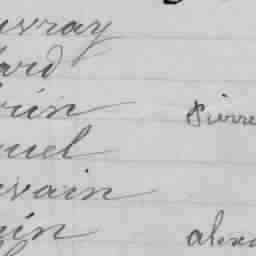 uvray
ard
rin Pierre
uel
vain
in alex